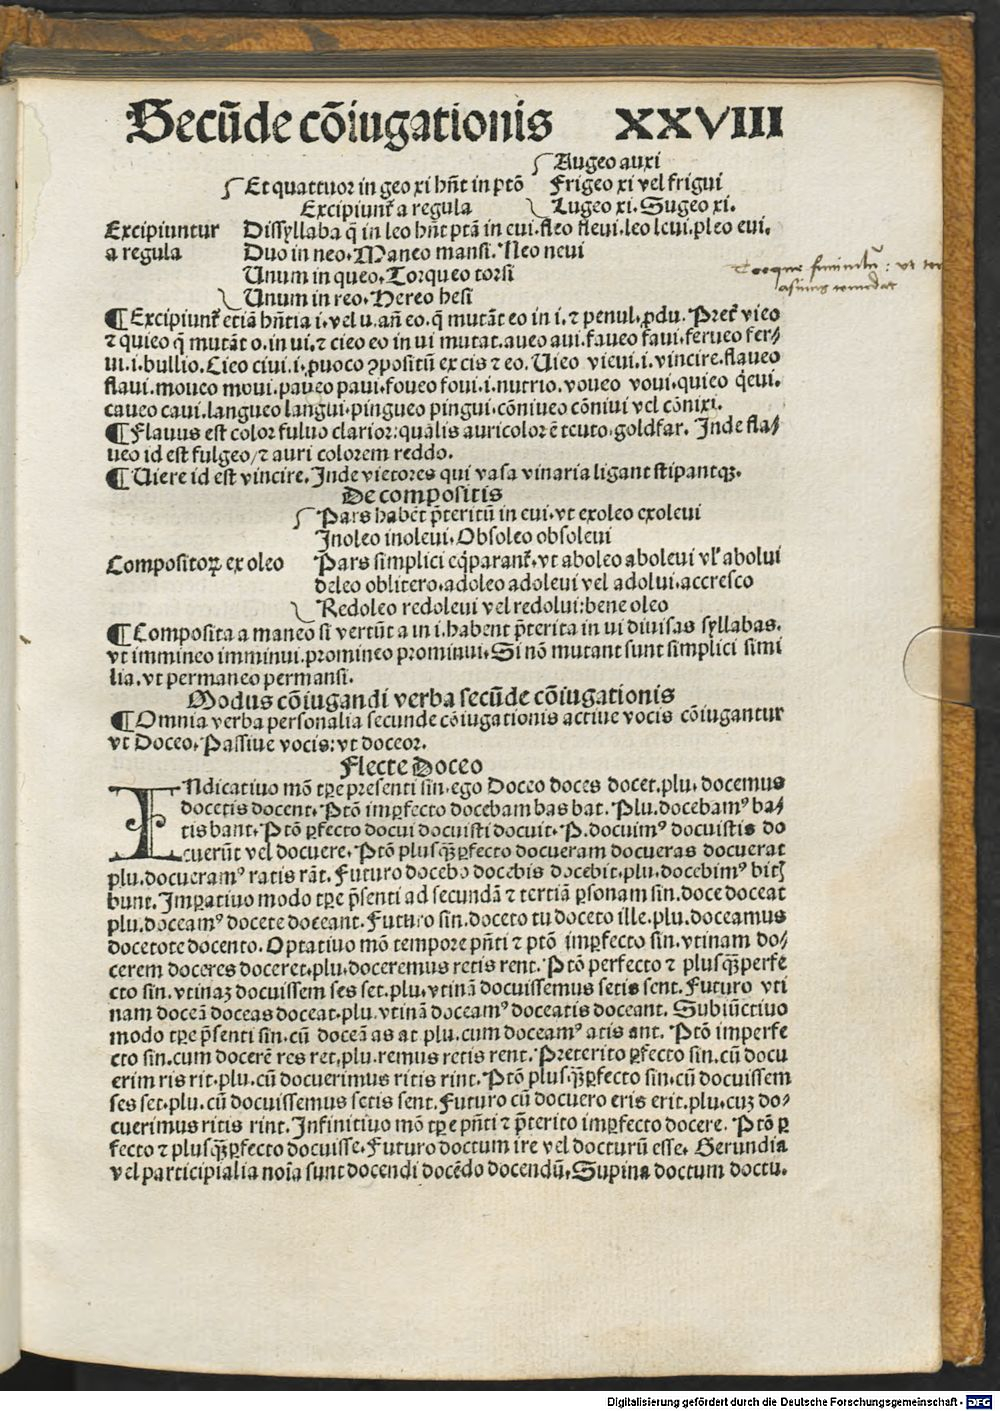 Secūde cōiugationis XXVIII
Augeo auxi
Et quattuor in geo xi hn̄t in ptō Frigeo xi vel frigui
Excipiunt᷑ a regula Lugeo xi. Sugeo xi.
Excipiuntur Dissyllaba q̄ in leo hn̄t ptā in eui. fleo fleui. leo leui. pleo eui.
a regula Duo in neo. Maneo mansi. Neo neui
Unum in queo. Torqueo torsi
Unum in reo. Hereo hesi
¶ Excipiunt᷑ etiā hn̄tia i. vel u. an̄ eo. q̄ mutāt eo in i. ⁊ penul. ꝓdu. Pret᷑ vieo
⁊ quieo q̄ mutāt o. in ui. ⁊ cieo eo in ui mutat. aueo aui. faueo faui. ferueo fer⸗
ui. i. bullio. Cieo ciui. i. ꝓuoco ꝯpositū ex cis ⁊ eo. Uieo vieui. i. vincire. flaueo
flaui. moueo moui. paueo paui. foueo foui. i. nutrio. voueo voui. quieo q̇eui.
caueo caui. langueo langui. pingueo pingui. cōniueo cōniui vel cōnixi.
¶ Flauus est color fuluo clarior: qualis auricolor ē tcuto. goldfar. Inde fla⸗
ueo id est fulgeo/ ⁊ auri colorem reddo.
¶ Uiere id est vincire. Inde vietores qui vasa vinaria ligant stipantqꝫ.
De compositis
Pars habēt p̄teritū in eui. vt exoleo exoleui
Inoleo inoleui. Obsoleo obsoleui
Compositoꝝ ex oleo Pars simplici eq̇parant᷑. vt aboleo aboleui vl̕ abolui
deleo oblitero. adoleo adoleui vel adolui. accresco
Redoleo redoleui vel redolui: bene oleo
¶ Composita a maneo si vertūt a in i. habent p̄terita in ui diuisas syllabas.
vt immineo imminui. promineo prominui. Si nō mutant sunt simplici simi
lia. vt permaneo permansi.
Modus cōiugandi verba secūde cōiugationis
¶ Omnia verba personalia secunde cōiugationis actiue vocis cōiugantur
vt Doceo. Passiue vocis: vt doceor.
Flecte Doceo
INdicatiuo mō tꝑe presenti sin. ego Doceo doces docet. plu. docemus
docetis docent. Ptō imꝑfecto docebam bas bat. Plu. docebamꝰ ba⸗
tis bant. Ptō ꝑfecto docui docuisti docuit. P. docuimꝰ docuistis do
cuerūt vel docuere. Ptō plusq̄ꝑfecto docueram docueras docuerat
plu. docueramꝰ ratis rāt. Futuro docebo docebis docebit. plu. docebimꝰ bitꝭ
bunt. Imꝑatiuo modo tꝑe p̄senti ad secundā ⁊ tertiā ꝑsonam sin. doce doceat
plu. doceamꝰ docete doceant. Futuro sin. doceto tu doceto ille. plu. doceamus
docetote docento. Optatiuo mō tempore pn̄ti ⁊ ptō imꝑfecto sin. vtinam do⸗
cerem doceres doceret. plu. doceremus retis rent. Ptō perfecto ⁊ plusq̄ꝫperfe
cto sin. vtinaꝫ docuissem ses set. plu. vtinā docuissemus setis sent. Futuro vti
nam doceā doceas doceat. plu. vtinā doceamꝰ doceatis doceant. Subiūctiuo
modo tꝑe p̄senti sin. cū doceā as at plu. cum doceamꝰ atis ant. Ptō imperfe
cto sin. cum docerē res ret, plu. remus retis rent. Preterito ꝑfecto sin. cū docu
erim ris rit. plu. cū docuerimus ritis rint. Ptō plusq̄ꝫꝑfecto sin. cū docuissem
ses set. plu. cū docuissemus setis sent. Futuro cū docuero eris erit. plu. cuꝫ do⸗
cuerimus ritis rint. Infinitiuo mō tꝑe pn̄ti ⁊ p̄terito imꝑfecto docere. Ptō ꝑ
fecto ⁊ plusq̄ꝫꝑfecto docuisse. Futuro doctum ire vel docturū esse. Gerundia
vel participialia noīa sunt docendi docēdo docendū. Supina doctum doctu.
Digitalisierung gefördert durch die Deutsche Forschungsgemeinschaft - DFG